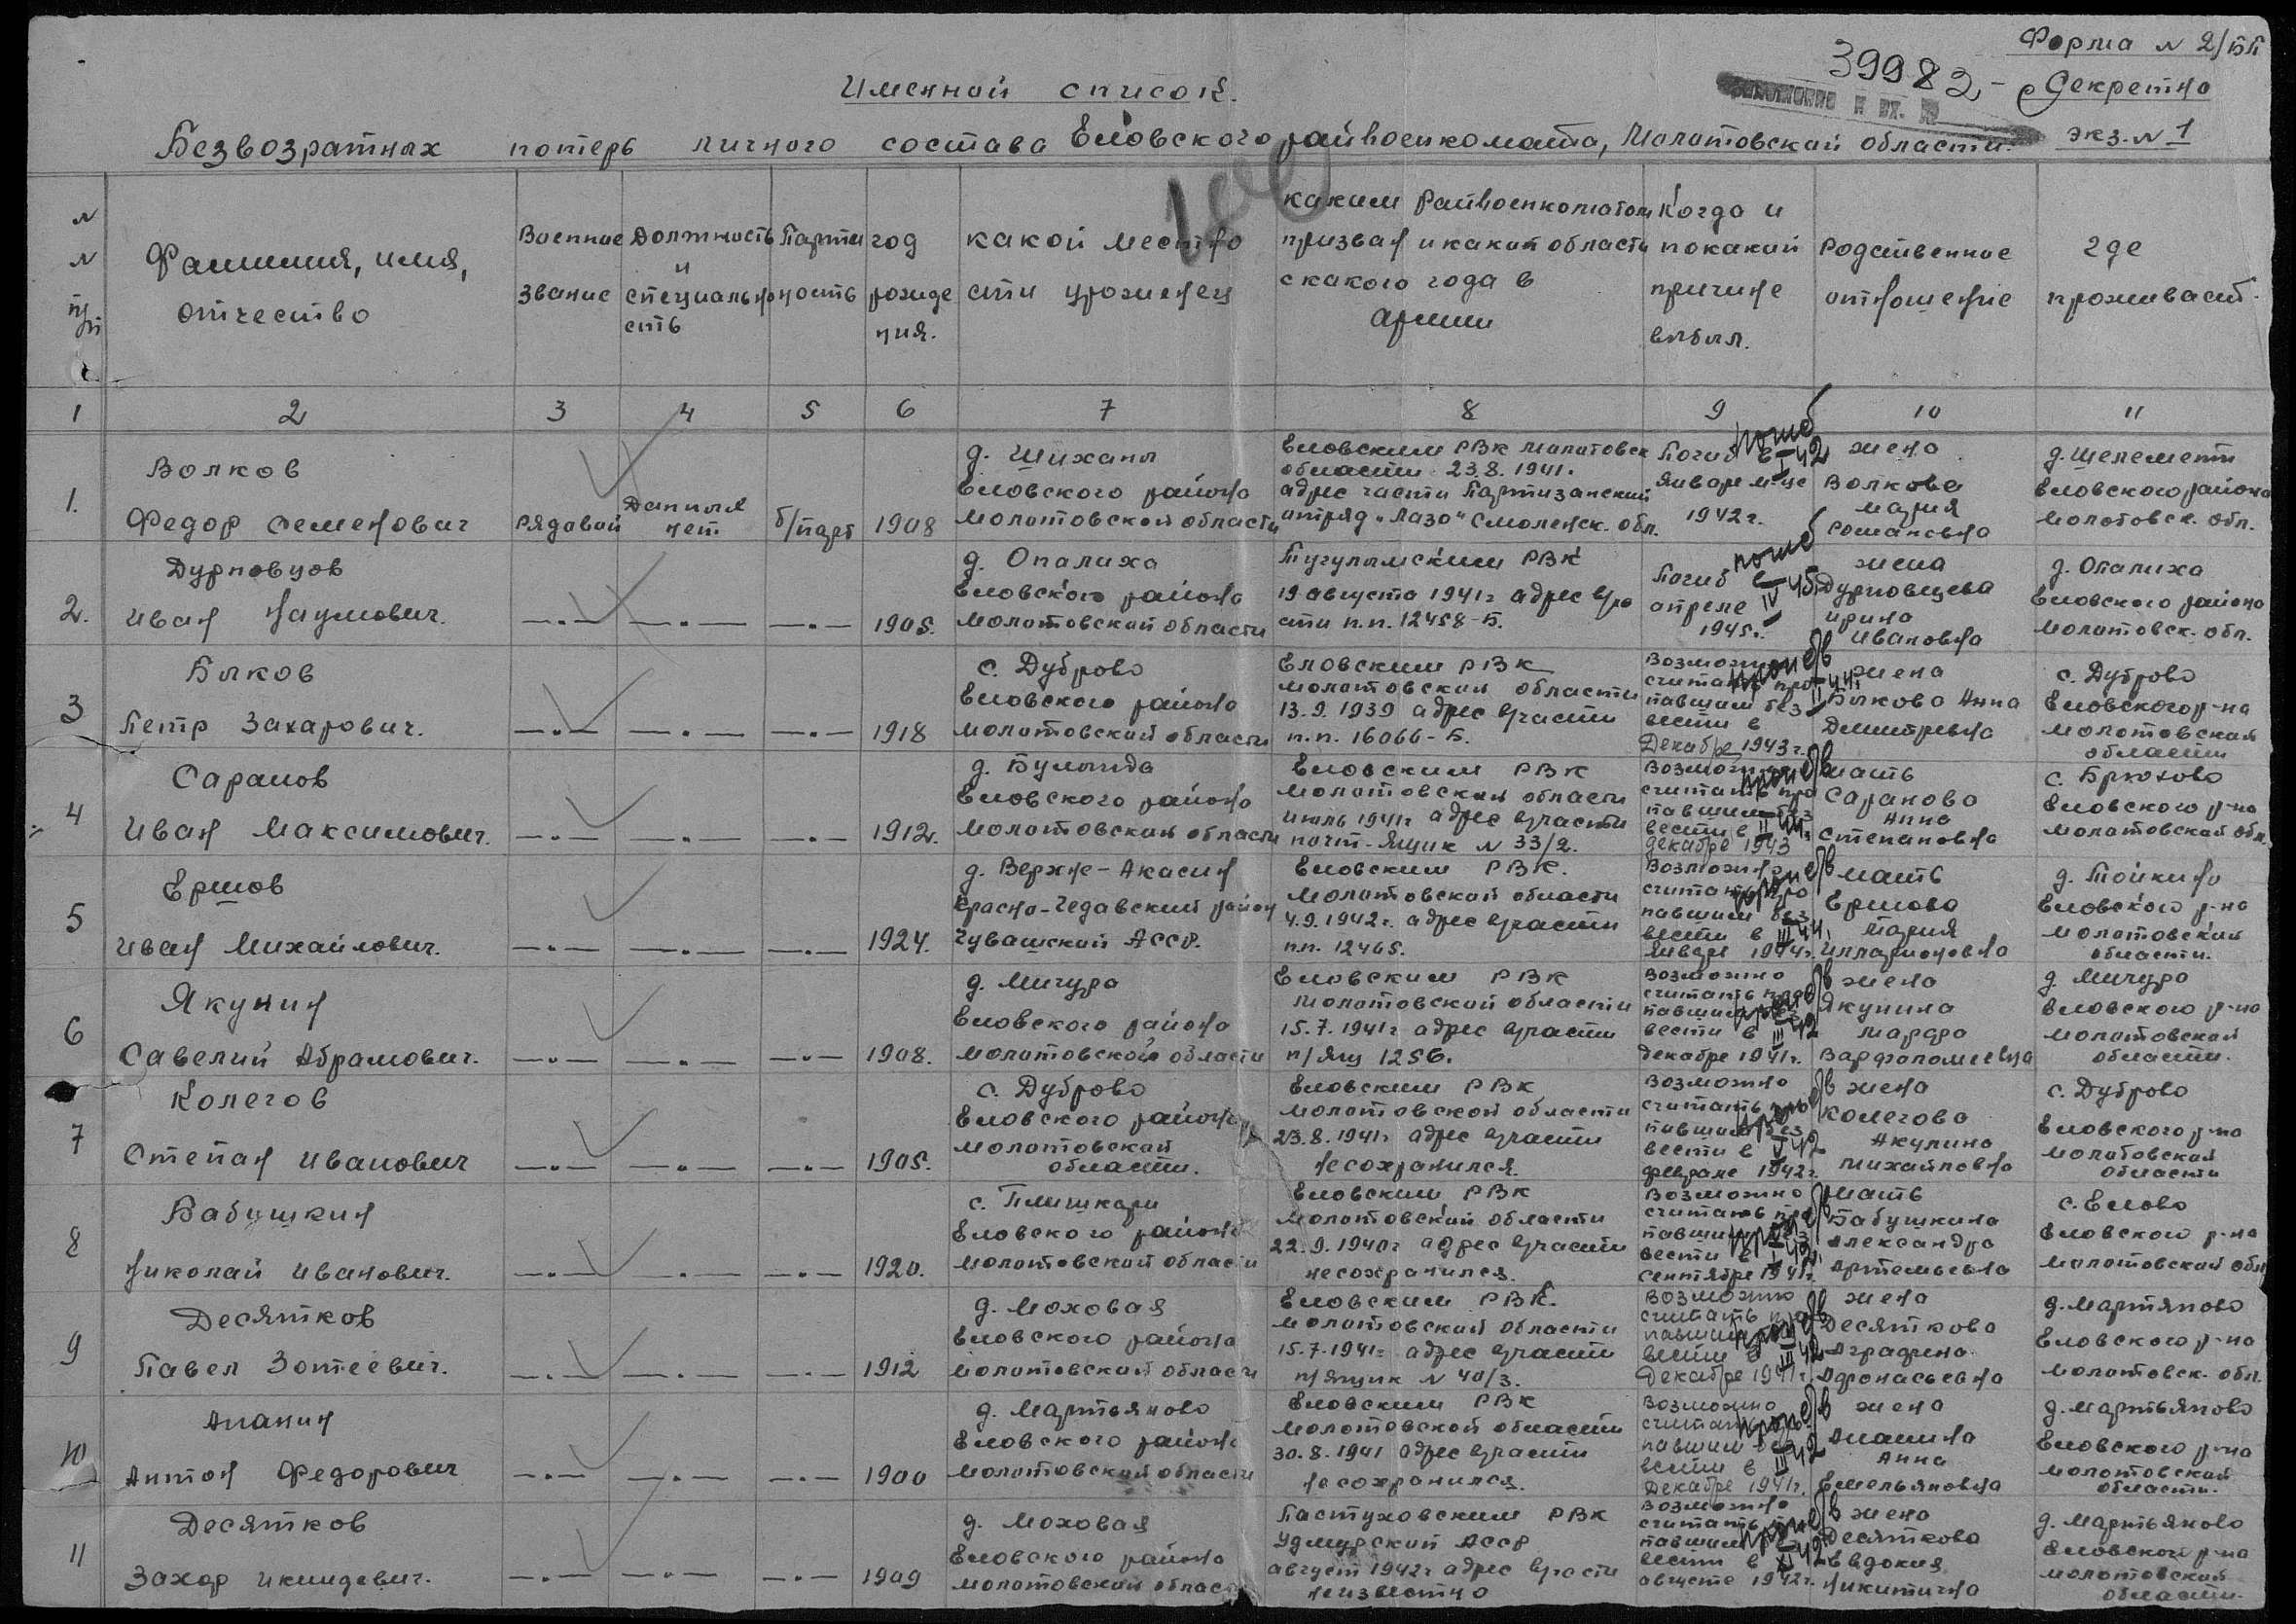 Форма N 2/БП
39982
Секретно
Именной список.
экз. N 1
Безвозратных потерь личного состава Еловского райвоенкомата, Молотовской области.
N N п/п
Фамилия, имя, отчество
Военное звание
Должность и специальность
Партийность
год рождения.
какой местности уроженец
каким Райвоенкоматом призван и какой области с какого года в армии
Когда и по какой причине выбыл.
Родственное отношение
где проживает.
1 2 3 4 5 6 7 8 9 10 11
1.
Волков
Федор Семенович
рядовой
Данных нет
б/парт
1908
д. Шиханы
Еловского района
Молотовской области
Еловским РВК Молотовск
области 23.8.1941.
адрес части Партизанский
отряд "Лазо" Смоленск. обл.
Погиб в
январе м-це
1942 г.
погиб
I-42
жена
Волкова
Мария
Романовна
д. Шелеметь
Еловского района
Молотовск. обл.
2.
Дурновцов
Иван Наумович.
—.— —.— —.—
1905.
д. Опалиха
Еловского района
Молотовской области
Тугулымским РВК
19 августа 1941 г адрес ча
сти п.п. 12458-Б.
Погиб в
апреле
1945 г.
погиб
IV-45
жена
Дурновцева
Ирина
Ивановна
д. Опалиха
Еловского района
Молотовск. обл.
3
Быков
Петр Захарович.
—.— —.— —.—
1918
с. Дуброво
Еловского района
Молотовской области
Еловским РВК
Молотовской области
13.9.1939 адрес части
п.п. 16066-Б.
Возможно
считать про
павшим без
вести в
Декабре 1943 г.
проп б/в
II-44
жена
Быкова Анна
Дмитревна
с. Дуброво
Еловского р-на
Молотовская
области
4
Сарапов
Иван Максимович.
—.— —.— —.—
1912.
д. Булында
Еловского района
Молотовской области
Еловским РВК
Молотовской области
июль 1941 г адрес части
почт-Ящик N 33/2.
Возможно
считать про
павшим без
вести в
декабре 1943
проп б/в
II-44
мать
Сарапова
Анна
Степановна
с. Брюхово
Еловского р-на
Молотовской обл.
5
Ершов
Иван Михайлович.
—.— —.— —.—
1924.
д. Верхне-Акасин
Красно-Чедавский район
Чувашской АССР.
Еловским РВК.
Молотовской области
4.9.1942 г. адрес части
п.п. 12465.
Возможно
считать про
павшим без
вести в
Январе 1944 г.
проп б/в
III-44
мать
Ершова
Мария
Илларионовна
д. Тойкино
Еловского р-на
Молотовской
области.
6
Якунин
Савелий Абрамович.
—.— —.— —.—
1908.
д. Мичура
Еловского района
Молотовской области
Еловским РВК
Молотовской области
15.7.1941 г адрес части
п/ящ 1256.
Возможно
считать про
павшим без
вести в
декабре 1941 г.
проп б/в
III-42
жена
Якунина
Марфа
Варфоломеевна
д. Мичура
Еловского р-на
Молотовской
области.
7
Колегов
Степан Иванович
—.— —.— —.—
1905.
с. Дуброво
Еловского района
Молотовской
области.
Еловским РВК
Молотовской области
23.8.1941 г адрес части
не сохранился.
Возможно
считать про
павшим без
вести в
феврале 1942 г.
проп б/в
V-42
жена
Колегова
Акулина
Михайловна
с. Дуброво
Еловского р-на
Молотовской
области
8
Бабушкин
Николай Иванович.
—.— —.— —.—
1920.
с. Плишкари
Еловского района
Молотовской области
Еловским РВК
Молотовской области
22.9.1940 г адрес части
не сохранился.
Возможно
считать про
павшим без
вести в
сентябре 1941 г.
проп б/в
мать
Бабушкина
Александра
Артемьевна
с. Елово
Еловского р-на
Молотовской обл
9
Десятков
Павел Зотеевич.
—.— —.— —.—
1912
д. Моховая
Еловского района
Молотовской области
Еловским РВК.
Молотовской области
15.7.1941 г адрес части
п/ящик N 40/3.
Возможно
считать про
павшим без
вести в
Декабре 1941 г.
проп б/в
III-42
жена
Десяткова
Аграфена
Афонасьевна
д. Мартяново
Еловского р-на
Молотовск. обл.
10
Ананин
Антон Федорович
—.— —.— —.—
1900
д. Мартьяново
Еловского района
Молотовской области
Еловским РВК
Молотовской области
30.8.1941 адрес части
не сохранился.
Возможно
считать про
павшим без
вести в
Декабре 1941 г.
проп б/в
III-42
жена
Ананина
Анна
Емельяновна
д. Мартьяново
Еловского р-на
Молотовской
области.
11
Десятков
Захар Икмидевич.
—.— —.— —.—
1909
д. Моховая
Еловского района
Молотовской област
Пастуховским РВК
Удмурской АССР
август 1942 г адрес части
неизвестно
Возможно
считать про
павшим без
вести в
августе 1942 г.
проп б/в
XI-42
жена
Десяткова
Евдокия
Никитична
д. Мартьяново
Еловской р-на
Молотовской
области.